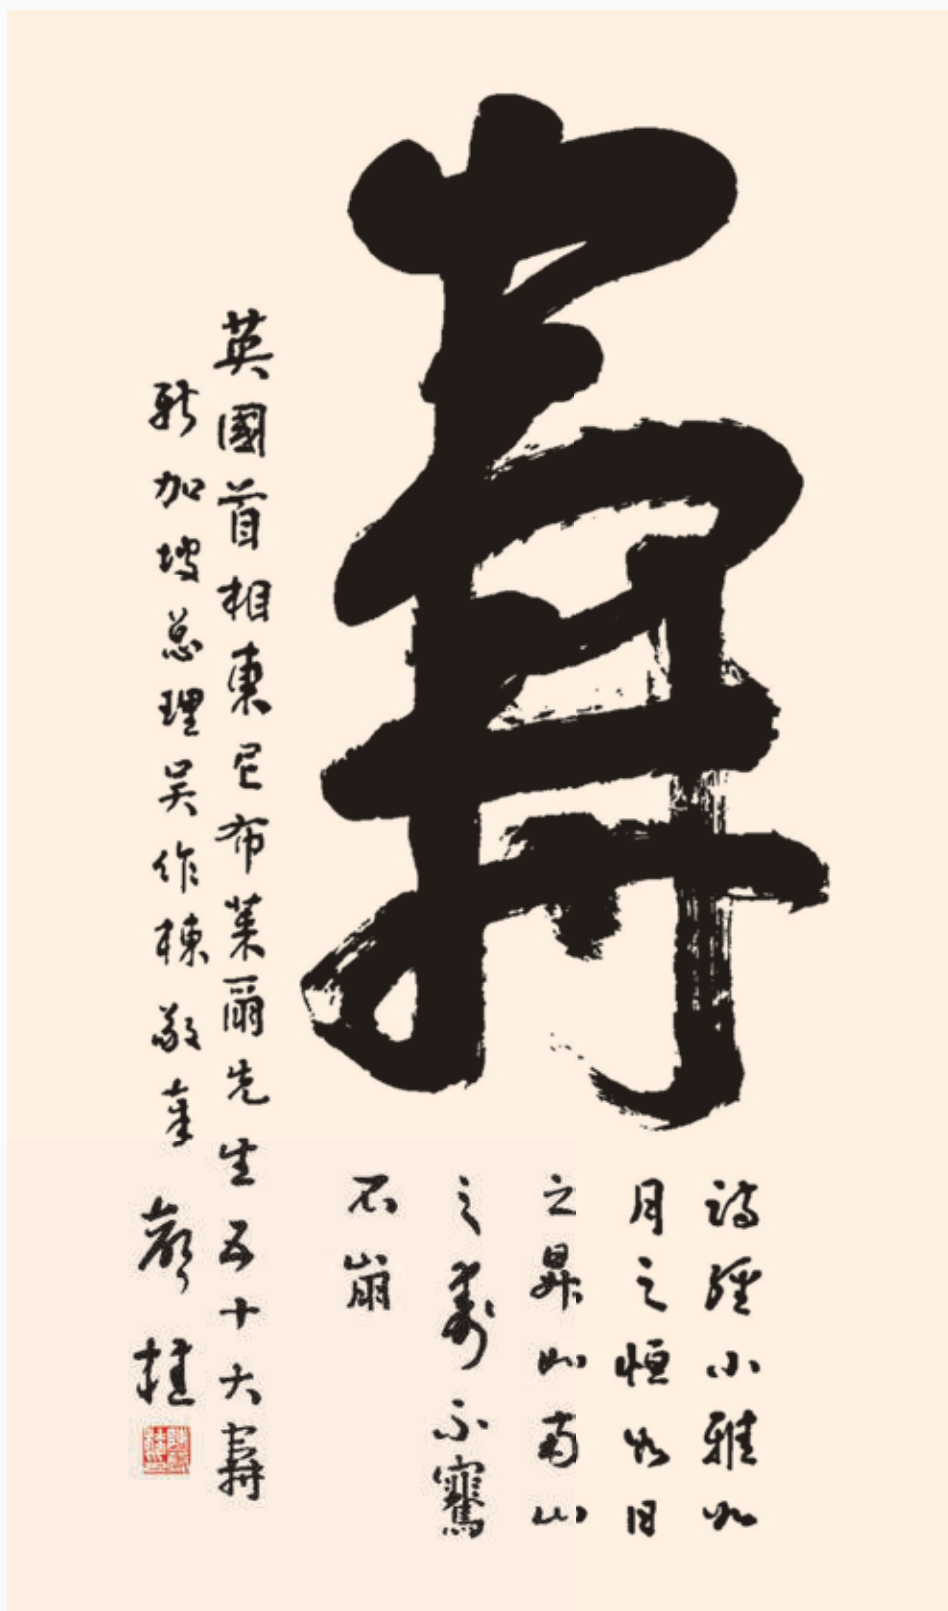 壽
詩經小雅如
月之恒如日
之昇如南山
之壽不騫
不崩
英國首相東尼布萊爾先生五十大壽
新加坡总理吴作棟敬奉 聲桂